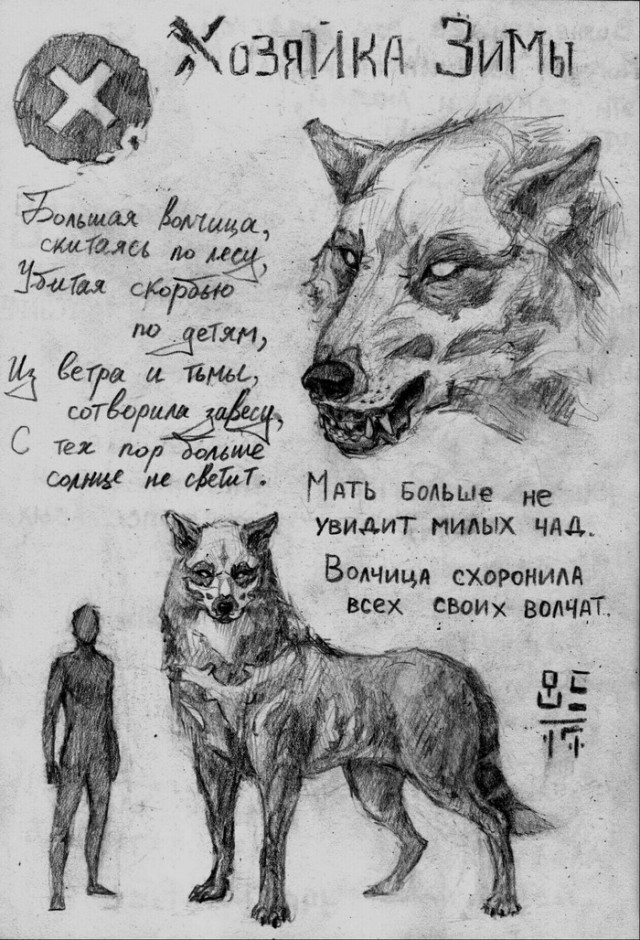 Хозяйка Зимы
Большая волчица,
скитаясь по лесу,
Убитая скорбью
по детям,
Из ветра и тьмы,
сотворила завесу,
С тех пор больше
солнце не светит.
Мать больше не
увидит милых чад.
Волчица схоронила
всех своих волчат.